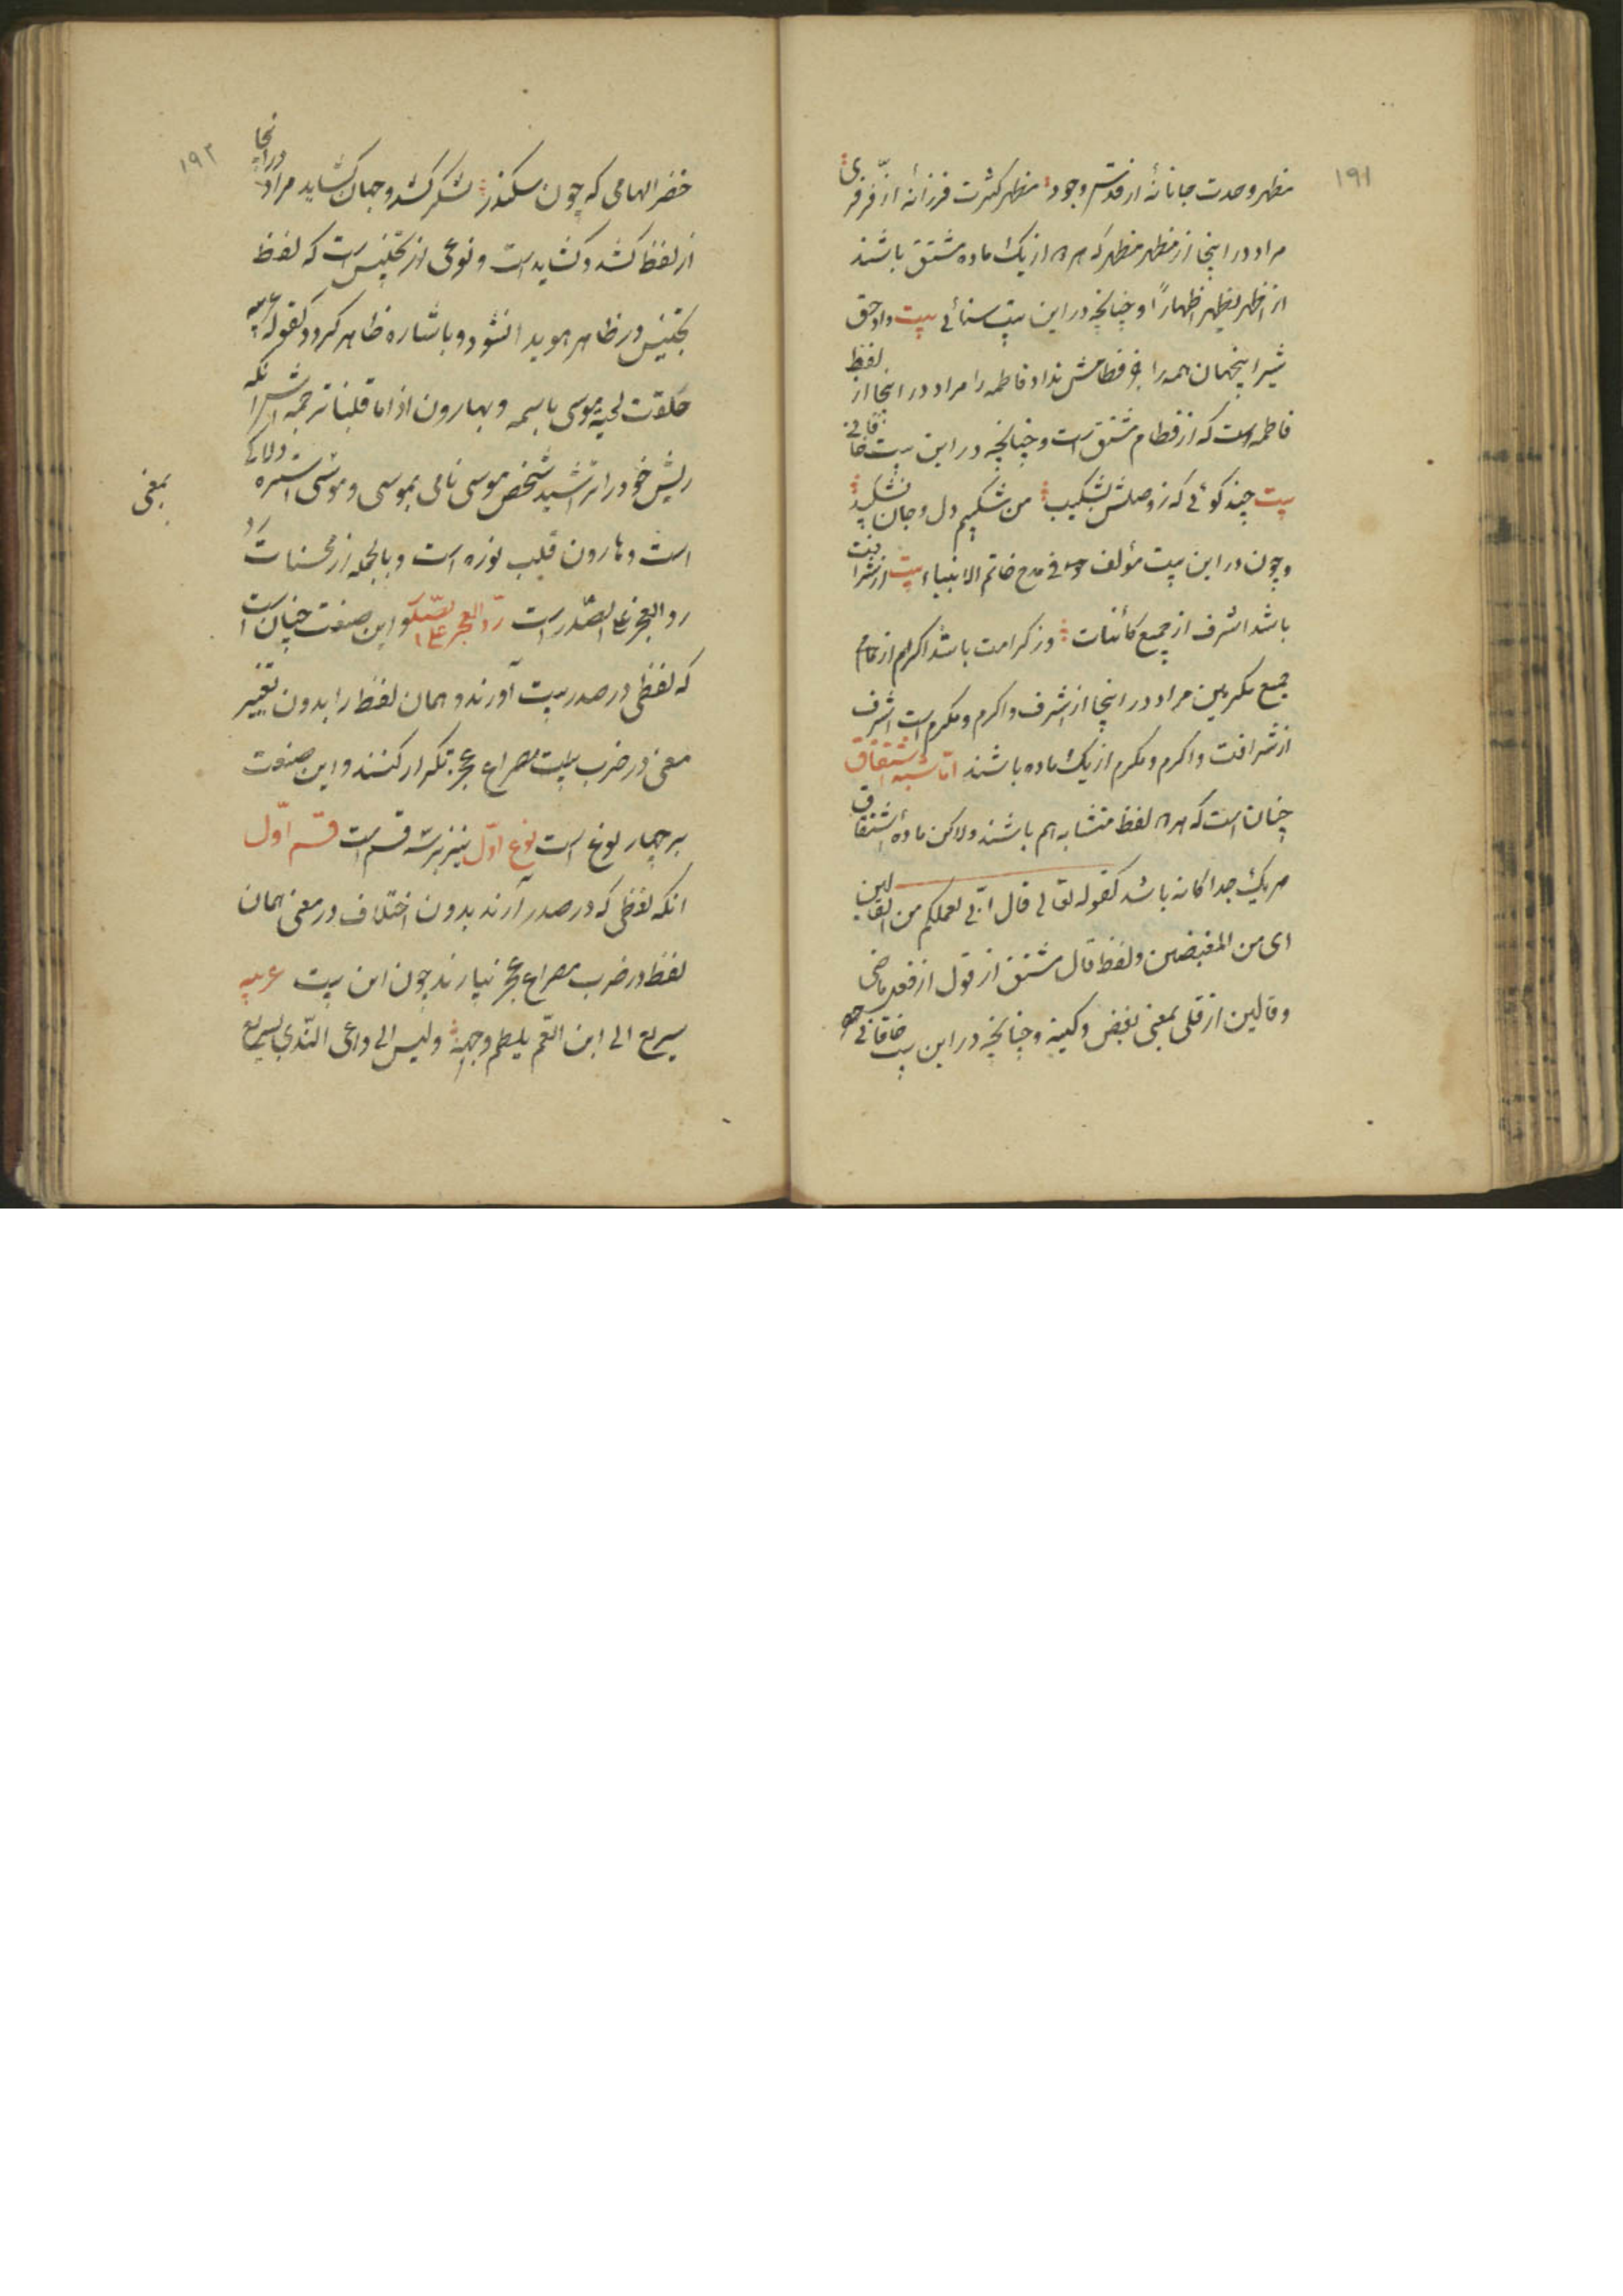 ۱۹۱
مظهر وحدت جانانهٔ از قدس وجود مظهر کثرت فرزانهٔ از فر فری
مراد در اینجا از مظهر مظهر که هر دو از یک ماده مشتق باشند
از اظهر یظهر اظهاراً و چنانچه در این بیت سنائی بیت داد حق
شیر اینجهان همه را جز فطامش نداد فاطمه را مراد در اینجا از لفظ
فاطمه است که از فطام مشتق است و چنانچه در این بیت خاقانی
بیت چند کوئی که ز وصلش بشکیب من شکیبم دل و جان نشکیبد
و چون در این بیت مؤلف فی مدح خاتم الانبیاء بیت از شرافت
باشد اشرف از جمیع کائنات وز کرامت باشد اکرم از تمام
جمیع مکرمین مراد در اینجا از اشرف و اکرم و مکرم است اشرف
از شرافت و اکرم و مکرم از یک ماده باشند اما شبه اشتقاق
چنان است که هر دو لفظ متشابه هم باشند ولاکن ماده اشتقاق
هر یک جداکانه باشد کقوله تعالی قال انی لعملکم من القالین
ای من المبغضین و لفظ قال مشتق از قول از فعل ماضی
و قالین از قلی بمعنی بغض و کینه و چنانچه در این بیت خاقانی
۱۹۲
خضر الهامی که چون سکندر لشکر کشد و جهان کشاید مراد در اینجا
از لفظ کشد و کشاید است و نوعی از تجنیس است که لفظ
تجنیس در ظاهر هویدا نشود و باشاره ظاهر کردد کقوله عربیه
حلقت لحیة موسی باسمه و بهارون اذا ما قلبا ترجمه اش آنکه
ریش خود را تراشید شخص موسی نامی بموسی و موسی استره دلاکی
است و هارون قلیب نوره است و بالجمله از محسنات رد
بمعنی
رد العجز علی الصدر است رد العجز علی الصدر و این صنعت چنان است
که لفظی در صدر بیت آورند و همان لفظ را بدون تغییر
معنی در ضرب بیت مصراع عجز تکرار کنند و این صنعت
بر چهار نوع است نوع اول نیز بر سه قسم است قسم اول
انکه لفظی که در صدر آرند بدون اختلاف در معنی همان
لفظ در ضرب مصراع عجز بیارند چون این بیت عربیه
سریع الی ابن العم یلطم وجهه ولیس الی داعی الندی بسریع